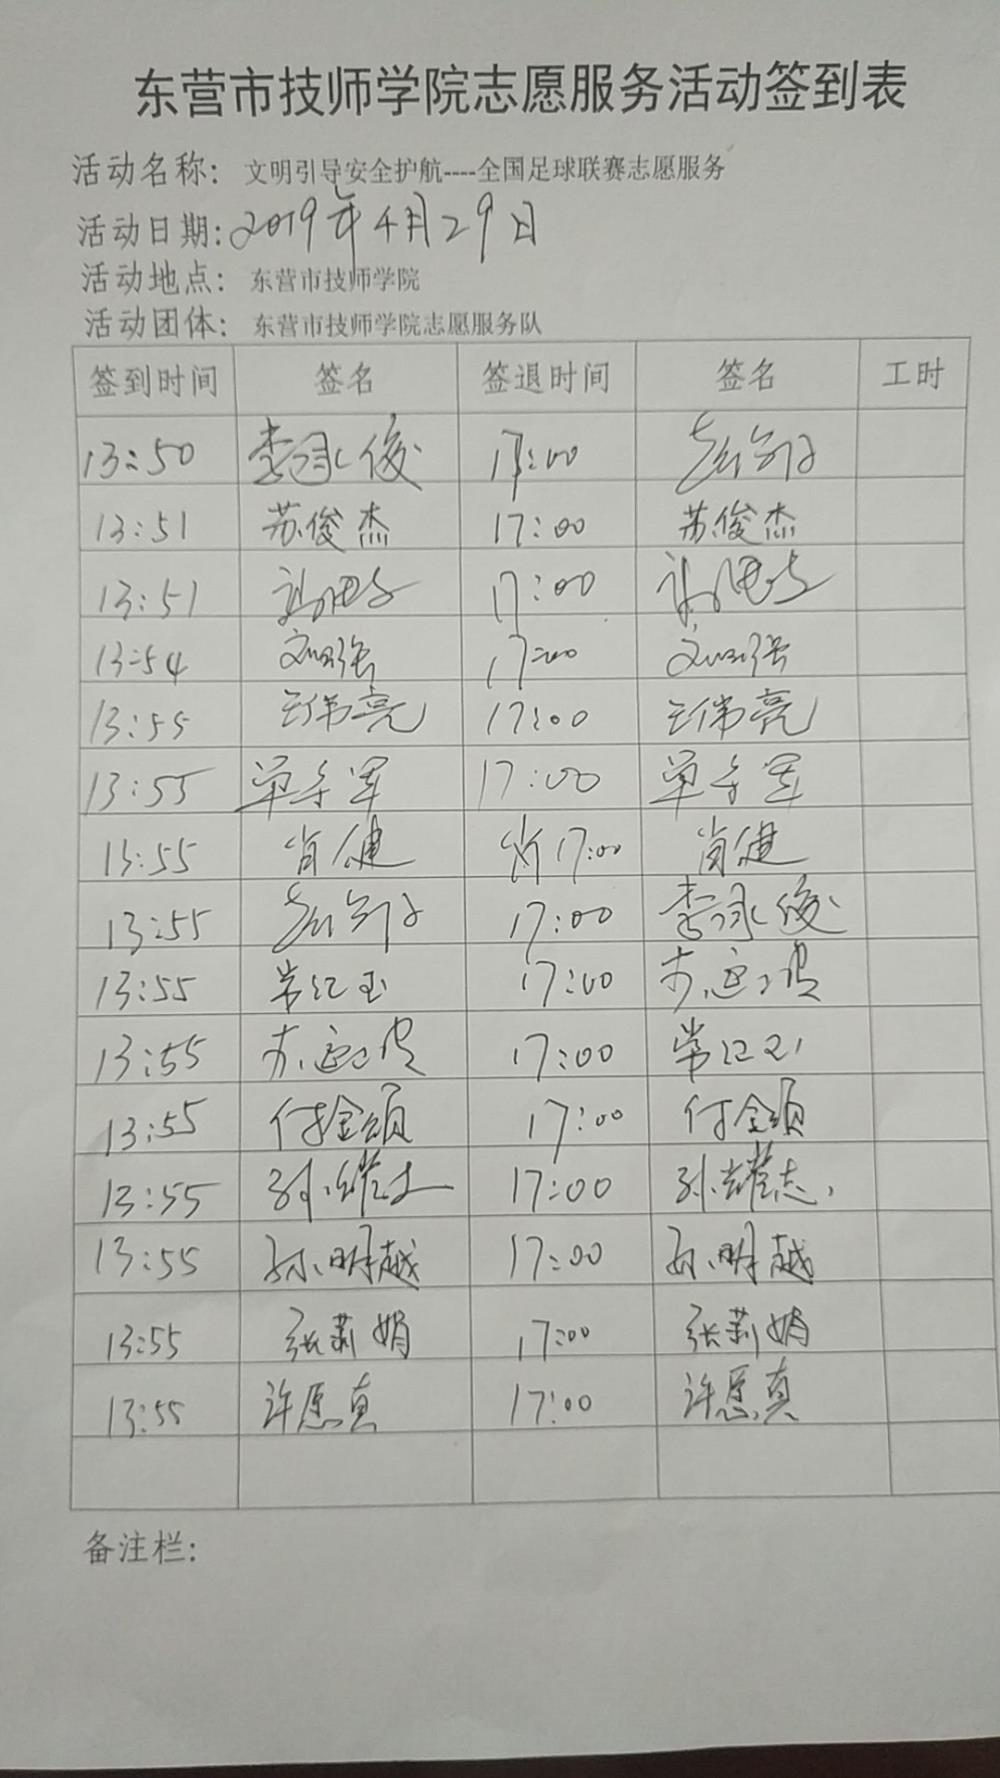 东营市技师学院志愿服务活动签到表
活动名称: 文明引导安全护航----全国足球联赛志愿服务
活动日期: 2019年4月29日
活动地点: 东营市技师学院
活动团体: 东营市技师学院志愿服务队
签到时间 签名 签退时间 签名 工时
13:50 李永俊 17:00
13:51 苏俊杰 17:00 苏俊杰
13:51 17:00
13:54 刘强 17:00 刘强
13:55 王伟亮 17:00 王伟亮
13:55 单军 17:00 单军
13:55 肖健 肖 17:00 肖健
13:55 17:00 李永俊
13:55 常红玉 17:00
13:55 17:00 常红玉
13:55 付金颂 17:00 付金颂
13:55 孙耀志 17:00 孙耀志
13:55 孙明越 17:00 孙明越
13:55 张莉娟 17:00 张莉娟
13:55 许愿真 17:00 许愿真
备注栏: